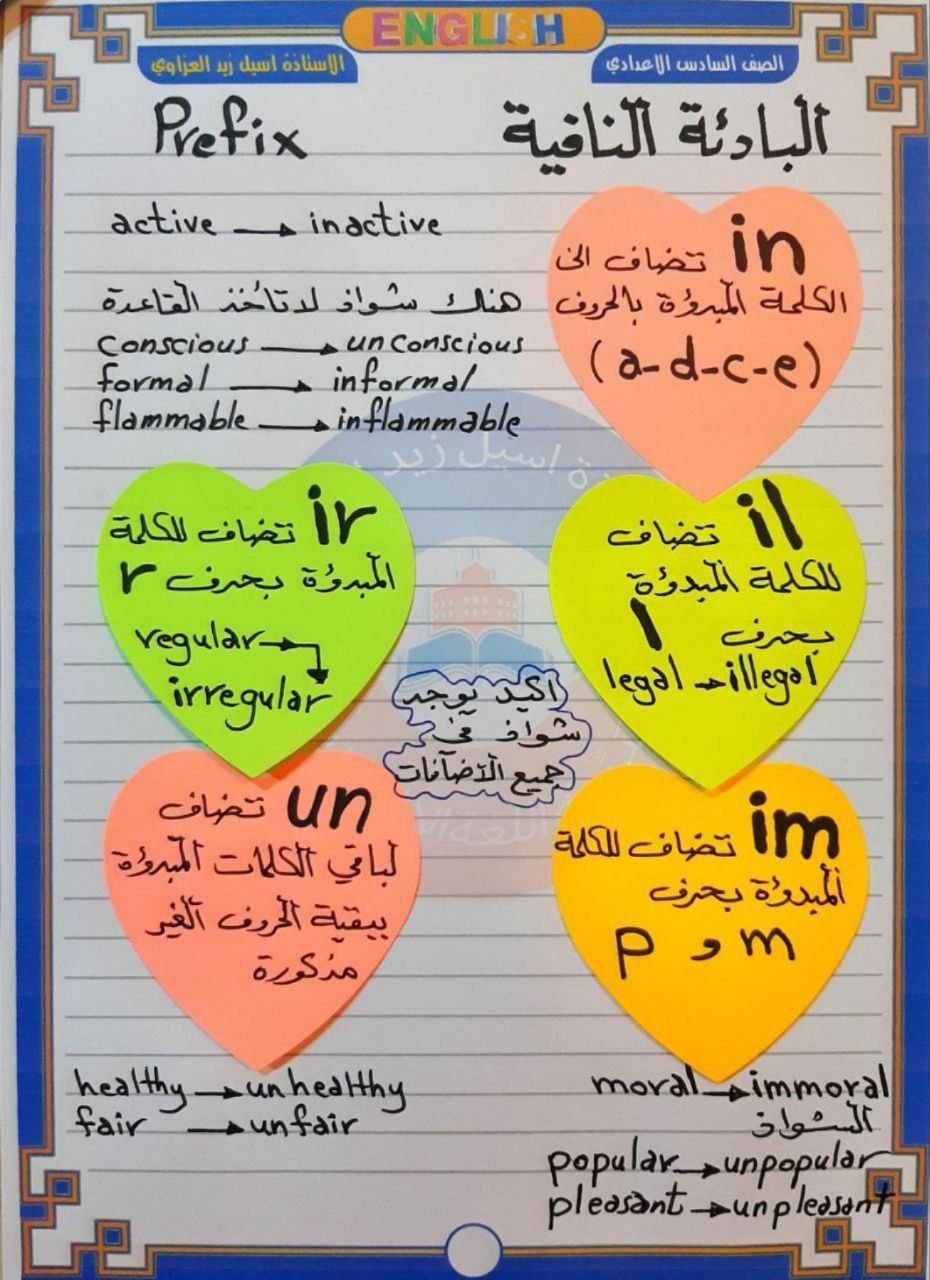 ENGLISH
الصف السادس الاعدادي
الاستاذة اسيل زيد العزاوي
البادئة النافية
Prefix
in تضاف الى
الكلمة المبدوؤة بالحروف
(a-d-c-e)
active → inactive
هنك شواذ لاتأخذ القاعدة
conscious → unconscious
formal → informal
flammable → inflammable
il تضاف
للكلمة المبدوؤة
بحرف l
legal → illegal
ir تضاف للكلمة
المبدوؤة بحرف r
regular →
irregular
اكيد يوجد
شواذ في
جميع الاضافات
im تضاف للكلمة
المبدوؤة بحرف
m و p
moral → immoral
الشواذ
popular → unpopular
pleasant → unpleasant
un تضاف
لباقي الكلمات المبدوؤة
ببقية الحروف الغير
مذكورة
healthy → unhealthy
fair → unfair
اسيل زيد